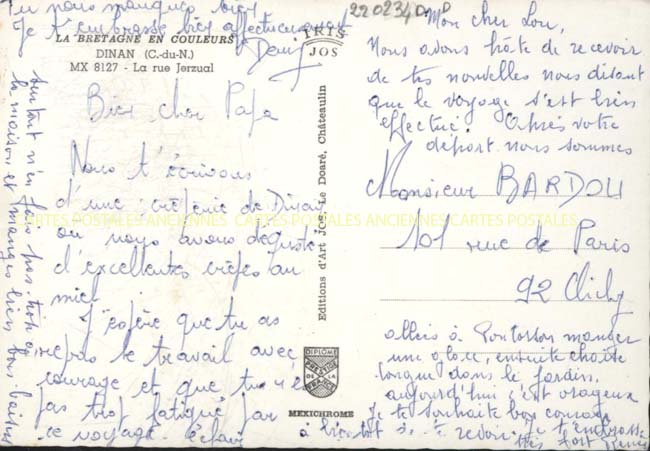 Tu nous manques bien
Je t'embrasse bien affectueusement
Denis
LA BRETAGNE EN COULEURS
DINAN (C.-du-N.)
MX 8127 - La rue Jerzual
Bien cher Papa
Nous t'écrivons
d'une crêperie de Dinan
où nous avons dégusté
d'excellentes crêpes au
miel.
J'espère que tu as
repris le travail avec
courage et que tu n'es
pas trop fatigué par
ce voyage.
surtout n'en fais pas trop à
la maison et manges bien bons baisers
IRIS
JOS
Editions d'Art Jos Le Doaré, Châteaulin
DIPLOME
PRESTIGE
DE LA
FRANCE
MEXICHROME
220234
Mon cher Lou,
Nous avons hâte de recevoir
de tes nouvelles nous disant
que le voyage s'est bien
effectué. Après votre
départ nous sommes
Monsieur BARDOU
101 rue de Paris
92 Clichy
allées à Pontorson manger
une glace, ensuite chaise
longue dans le jardin,
aujourd'hui c'est orageux
Je te souhaite bon courage
à bientôt de te revoir. Je t'embrasse
très fort
CARTES POSTALES ANCIENNES CARTES POSTALES ANCIENNES CARTES POSTALES